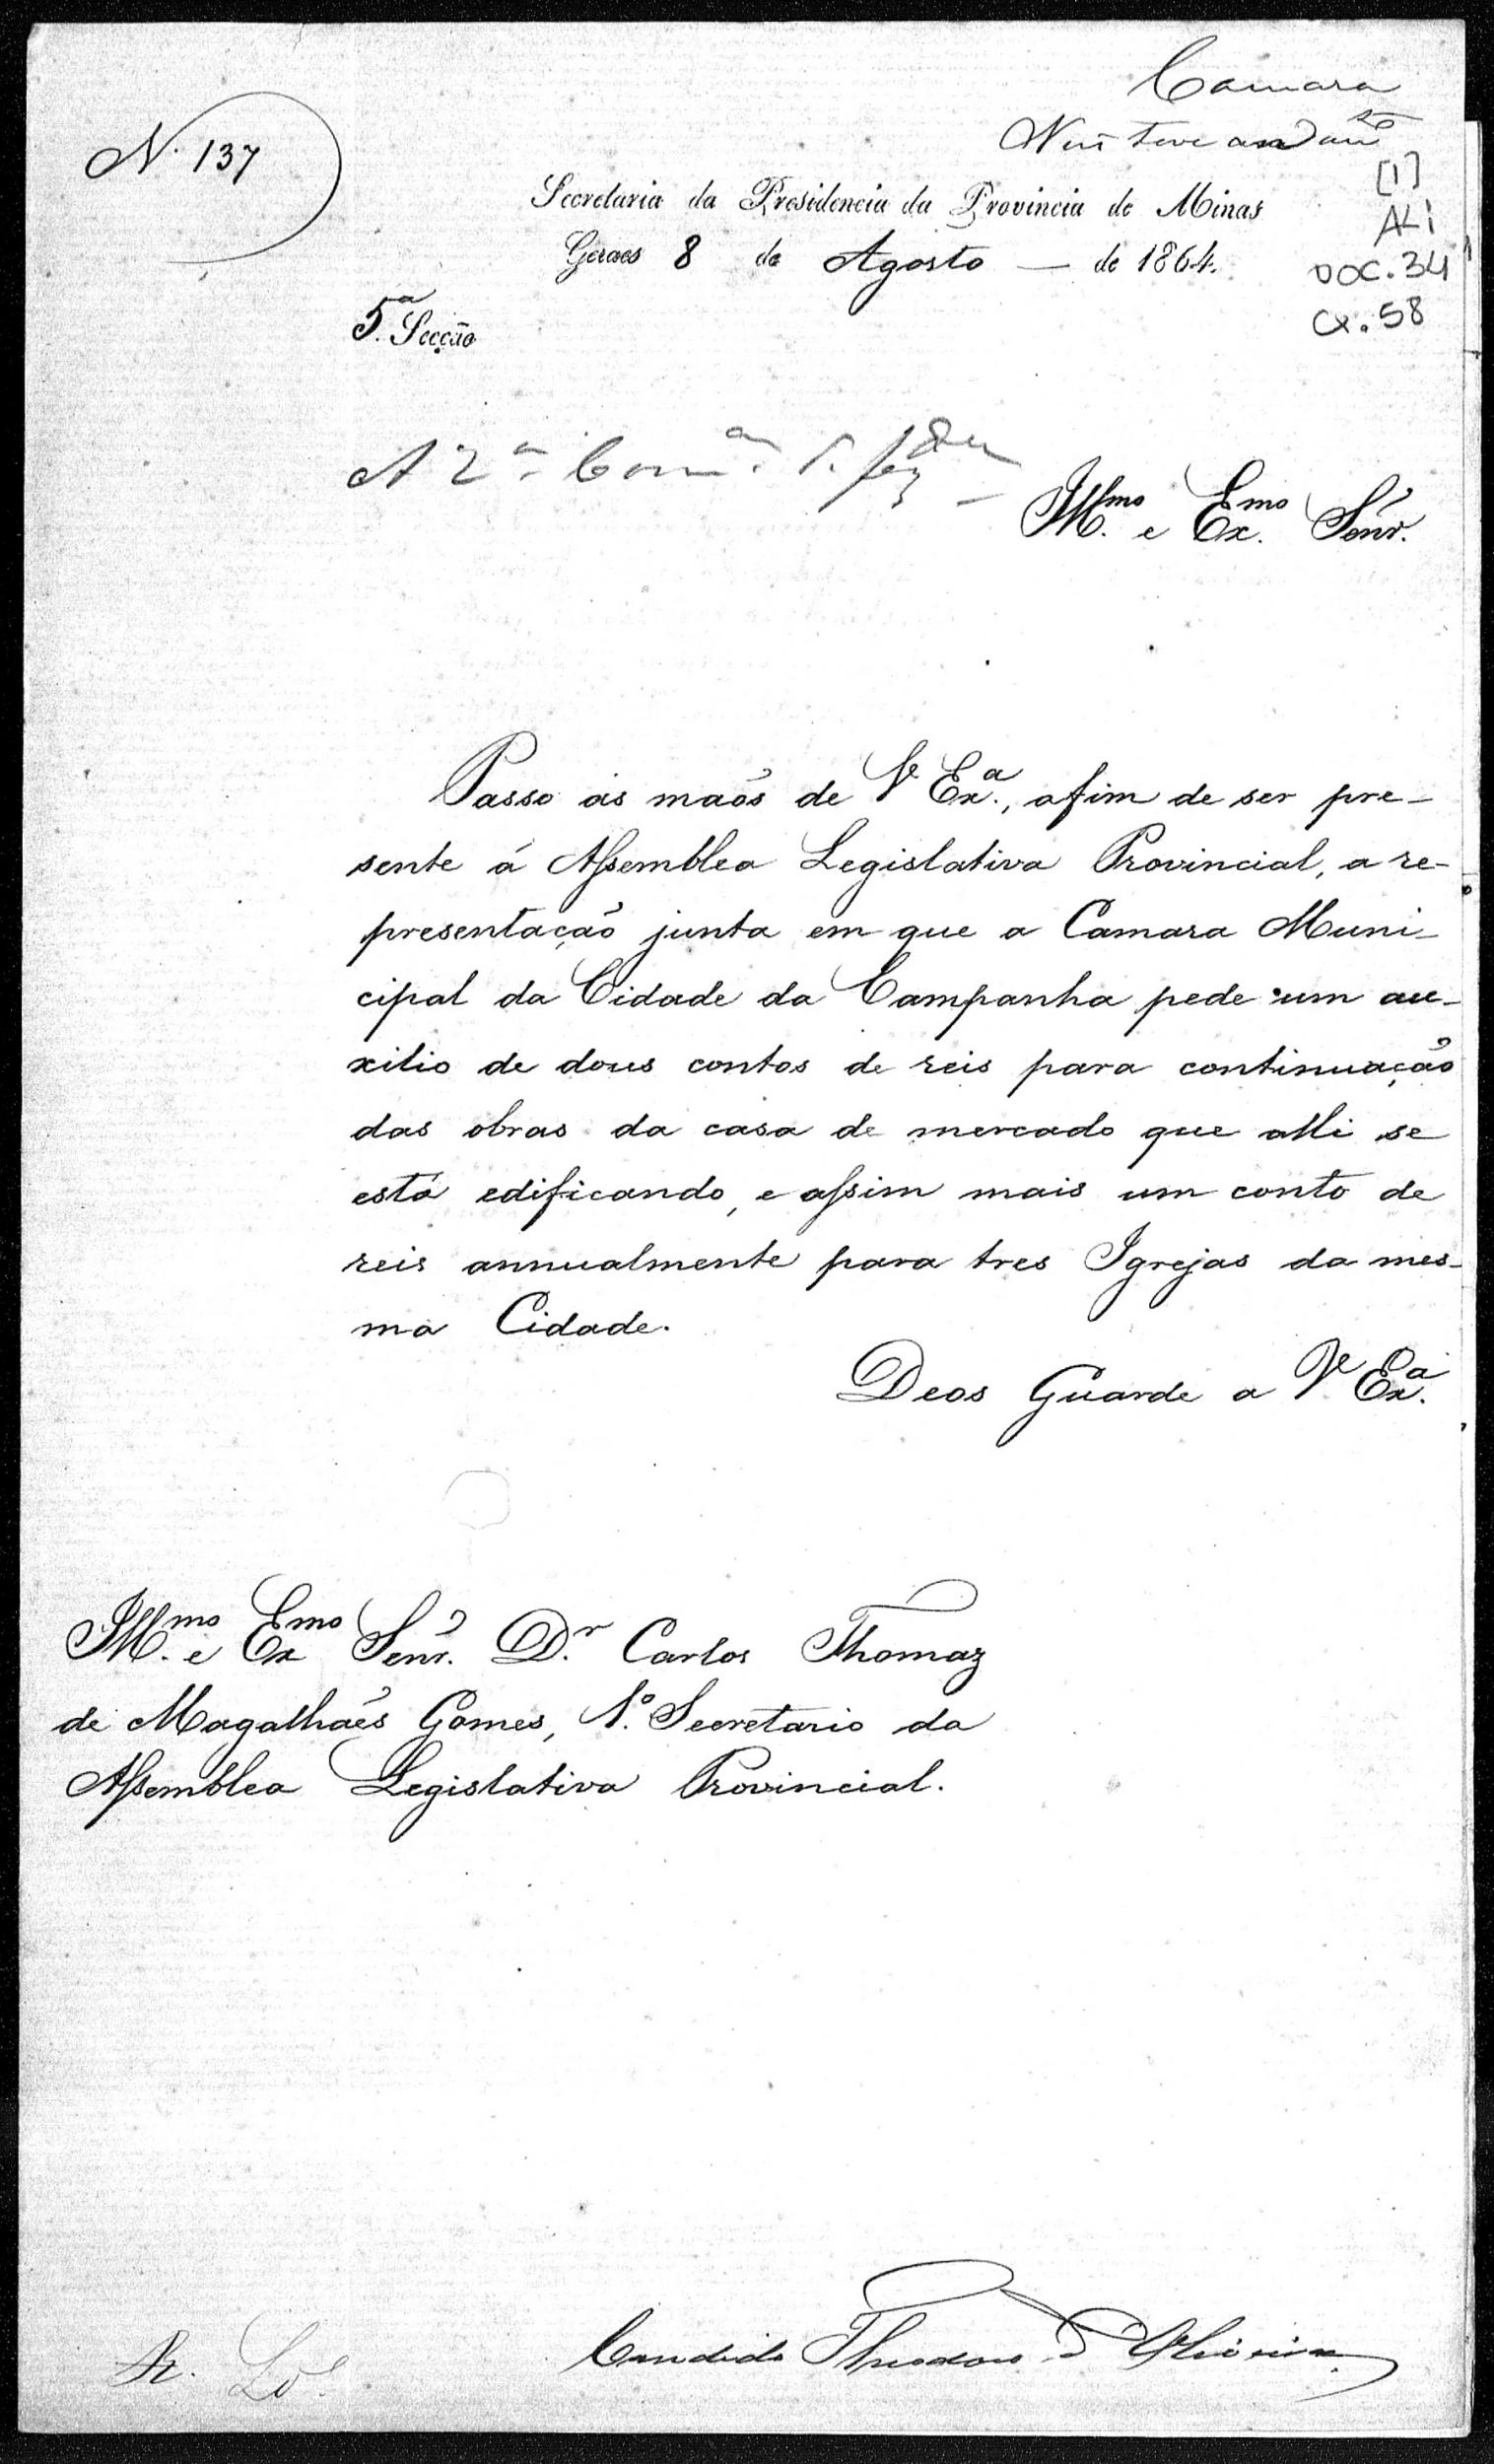 Camara
N. 137
Não teve andam.to
[1]
Secretaria da Presidencia da Provincia de Minas
ALI
Geraes 8 de Agosto — de 1864.
DOC. 34
Cx. 58
5.ª Secção
A 2.ª Com.
Ill.mo e Ex.mo Senr.
Passo ás maõs de V Ex.ª, afim de ser pre-
sente á Assemblea Legislativa Provincial, a re-
presentaçaõ junta em que a Camara Muni-
cipal da Cidade da Campanha pede um au-
xilio de dous contos de reis para continuaçaõ
das obras da casa de mercado que alli se
está edificando, e assim mais um conto de
reis annualmente para tres Igrejas da mes-
ma Cidade.
Deos Guarde a V Ex.ª
Ill.mo e Ex.mo Senr. D.r Carlos Thomaz
de Magalhaẽs Gomes, 1.º Secretario da
Assemblea Legislativa Provincial.
Candido Theodoro d'Oliveira